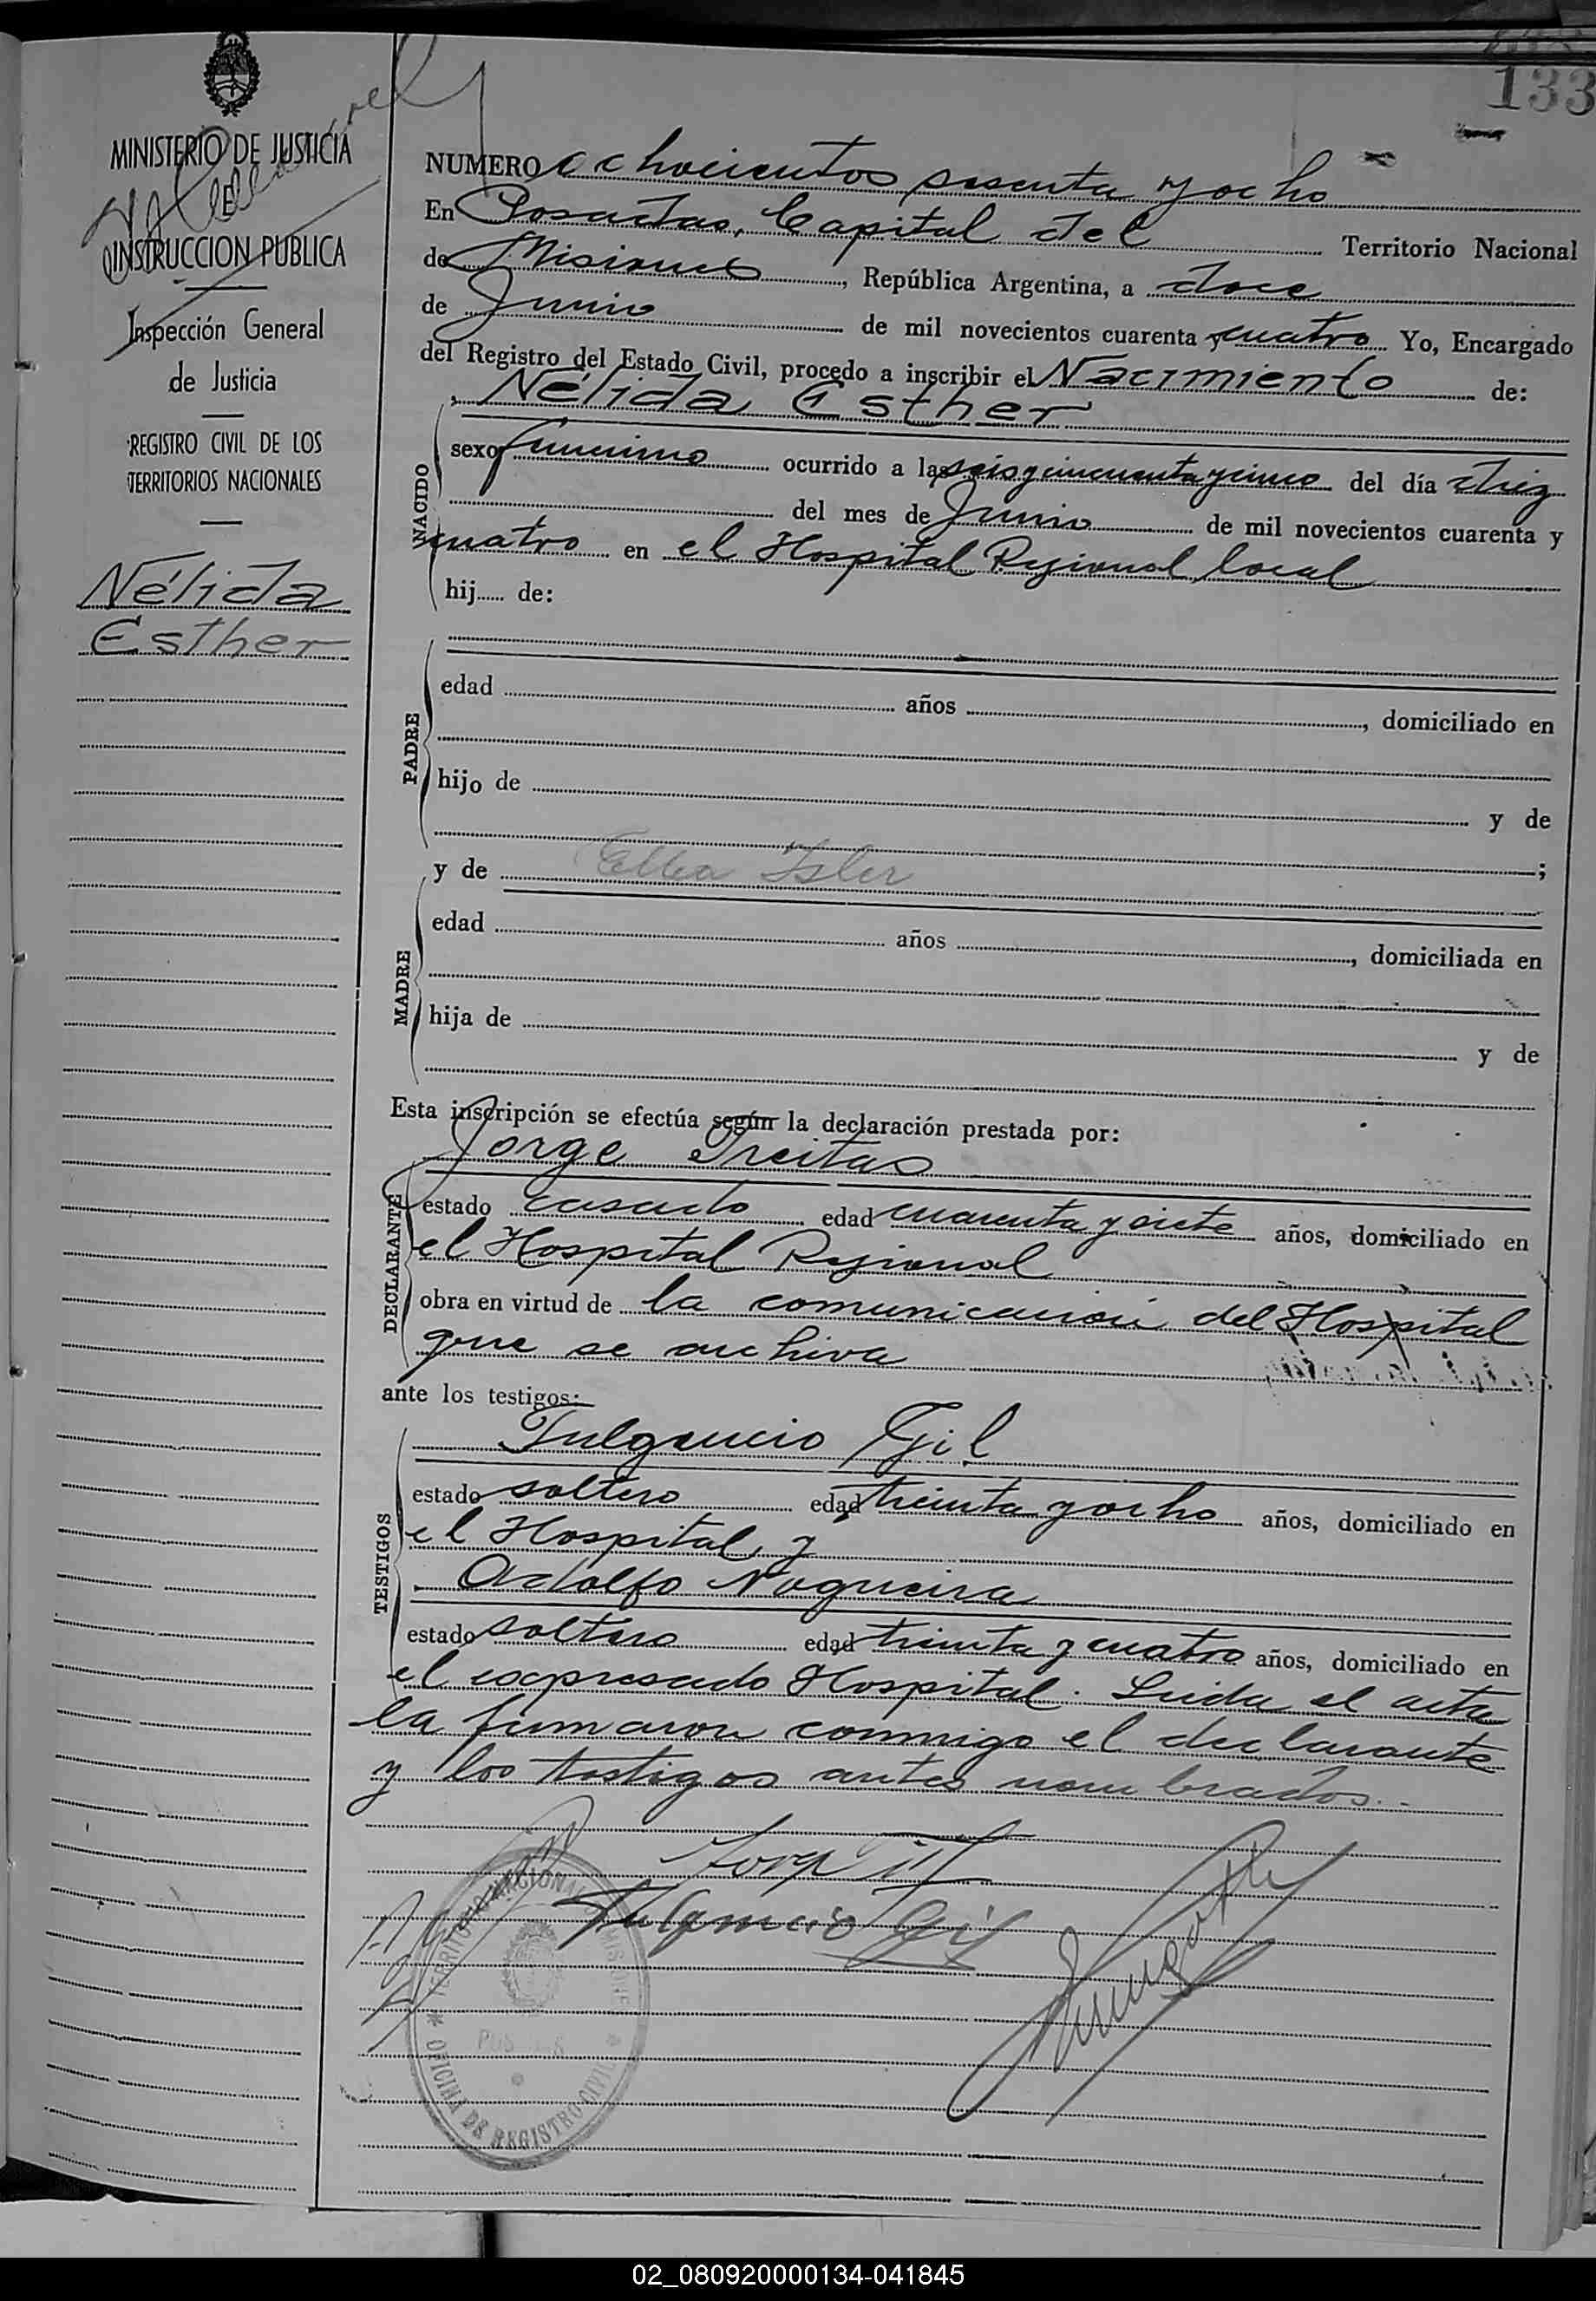 133
MINISTERIO DE JUSTICIA
E
INSTRUCCION PUBLICA
Inspección General
de Justicia
REGISTRO CIVIL DE LOS
TERRITORIOS NACIONALES
Nélida
Esther
NUMERO ochocientos sesenta y ocho
En Posadas, Capital del Territorio Nacional
de Misiones, República Argentina, a doce
de Junio de mil novecientos cuarenta y cuatro Yo, Encargado
del Registro del Estado Civil, procedo a inscribir el Nacimiento de:
Nélida Esther
NACIDO
sexo femenino ocurrido a las seis y cincuenta y cinco del día diez
del mes de Junio de mil novecientos cuarenta y
cuatro en el Hospital Regional local
hij...... de:
PADRE
edad años , domiciliado en
hijo de y de
;
y de Elba Isler
MADRE
edad años , domiciliada en
hija de y de
Esta inscripción se efectúa según la declaración prestada por:
Jorge Freitas
DECLARANTE
estado casado edad cuarenta y siete años, domiciliado en
el Hospital Regional
obra en virtud de la comunicación del Hospital
que se archiva
ante los testigos:
TESTIGOS
Fulgencio Gil
estado soltero edad treinta y ocho años, domiciliado en
el Hospital, y
Adolfo Nogueira
estado soltero edad treinta y cuatro años, domiciliado en
el expresado Hospital. Leida el acta
la firmaron conmigo el declarante
y los testigos antes nombrados.-
Fulgencio Gil
TERRITORIO NACIONAL MISIONES
OFICINA DE REGISTRO CIVIL
02_080920000134-041845